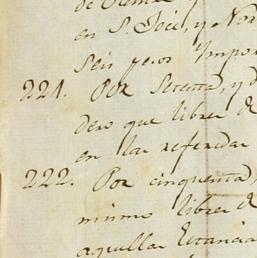 en S. José, y Nor
Seis pesos impor
221. Por Setenta, y d
dero que libres d
en las referidas
222. Por cinquenta,
mismo libres d
aquellas Estancia